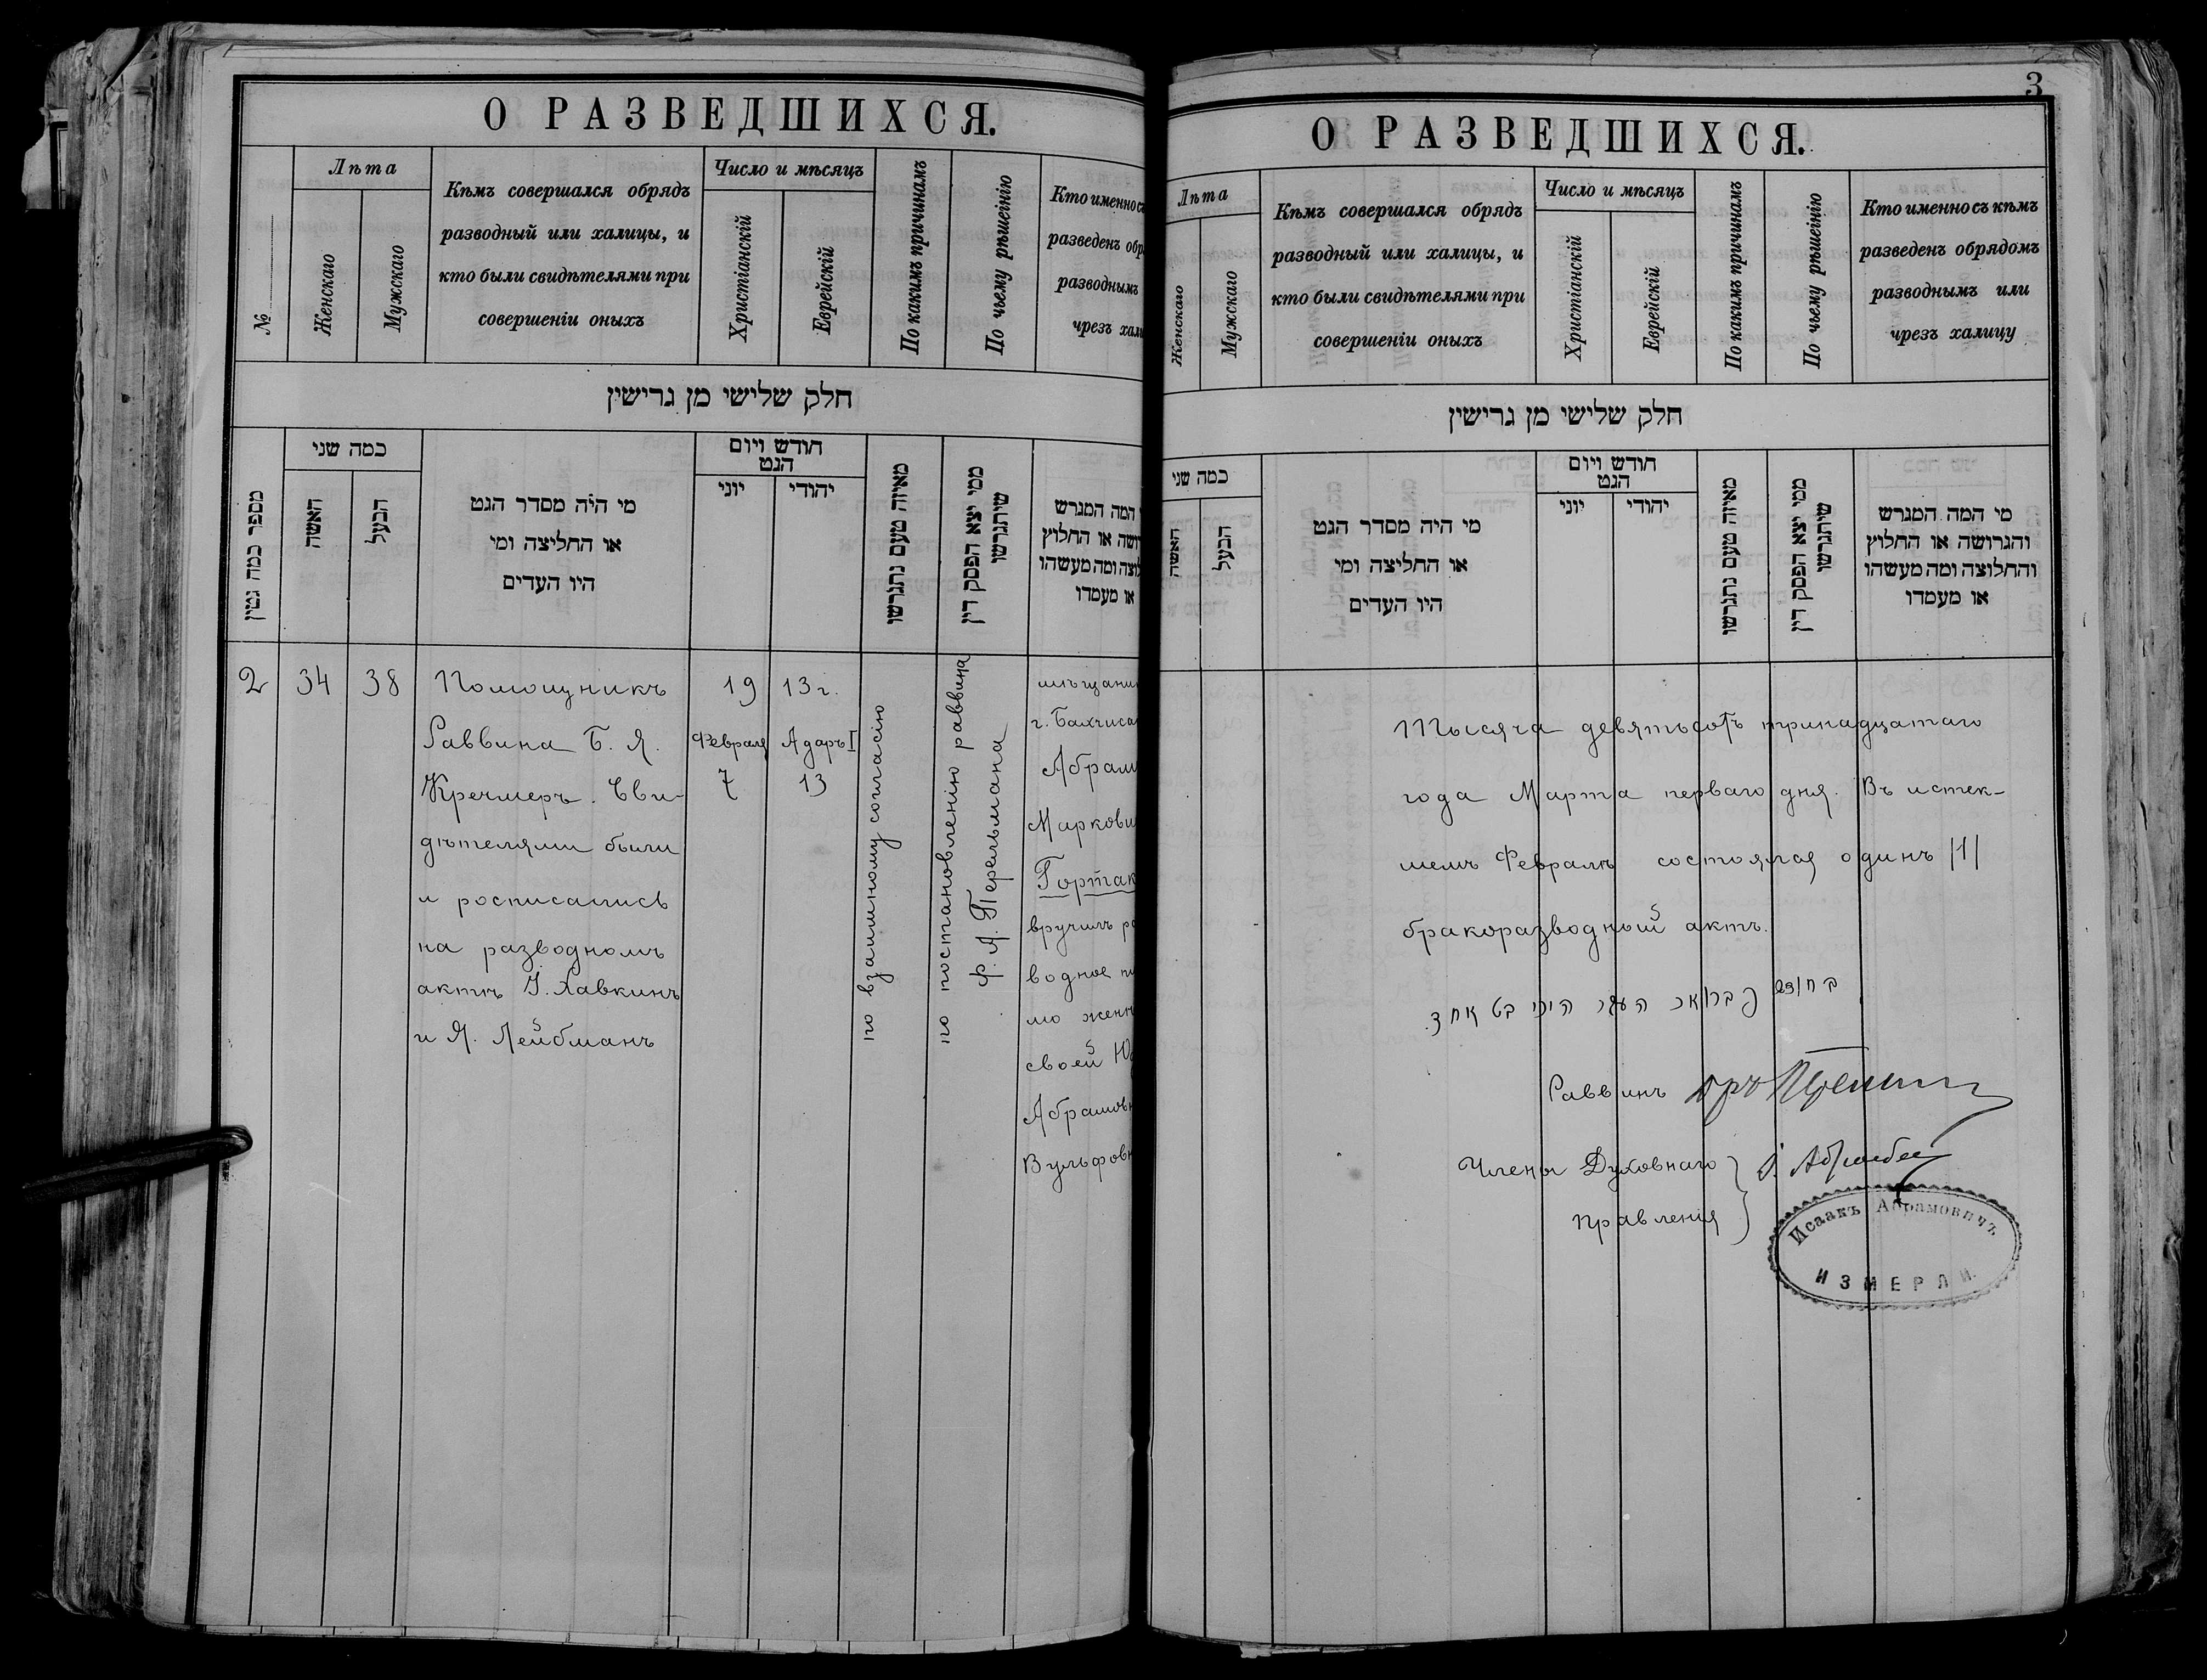 О РАЗВЕДШИХСЯ.
№
Лѣта
Женскаго
Мужскаго
Кѣмъ совершался обрядъ
разводный или халицы, и
кто были свидѣтелями при
совершеніи оныхъ
Число и мѣсяцъ
Христіанскій
Еврейскій
По какимъ причинамъ
По чьему рѣшенію
Кто именно съ
разведенъ обр
разводнымъ
чрезъ хали
חלק שלישי מן גרישין
מספר כמה גטין
כמה שני
האשה
הבעל
מי היה מסדר הגט
או החליצה ומי
היו העדים
חודש ויום
הגט
יוני
יהודי
מאיזה טעם נתגרשו
ממי יצא הפסק דין
שיתגרשו
המה המגרש
ושה או החלוץ
לוצה ומה מעשהו
או מעמדו
2
34
38
Помощникъ
Раввина Б. Я.
Кречмеръ. Сви-
дѣтелями были
и росписались
на разводномъ
актѣ У. Хавкинъ
и Я. Лейбманъ
19 13 г.
Февраля Адаръ I
7 13
по взаимному согласію
по постановленію раввина
Ф. Я. Перельмана
мѣщани
г. Бахчиса
Абрам
Маркови
Гортак
вручилъ ра
водное пи
мо женѣ
своей Ю
Абрамов
Вульфов
3
О РАЗВЕДШИХСЯ.
Лѣта
Женскаго
Мужскаго
Кѣмъ совершался обрядъ
разводный или халицы, и
кто были свидѣтелями при
совершеніи оныхъ
Число и мѣсяцъ
Христіанскій
Еврейскій
По какимъ причинамъ
По чьему рѣшенію
Кто именно съ кѣмъ
разведенъ обрядомъ
разводнымъ или
чрезъ халицу
חלק שלישי מן גרישין
כמה שני
האשה
הבעל
מי היה מסדר הגט
או החליצה ומי
היו העדים
חודש ויום
הגט
יוני
יהודי
מאיזה טעם נתגרשו
ממי יצא הפסק דין
שיתגרשו
מי המה המגרש
והגרושה או החלוץ
והחלוצה ומה מעשהו
או מעמדו
Тысяча девятьсотъ тринадцатаго
года Марта перваго дня. Въ истек-
шемъ Февралѣ состоялся одинъ /1/
бракоразводный актъ.
בחודש פברואר העבר היה גט אחד.
Раввинъ
Члены Духовнаго
правленія
Исаакъ Абрамовичъ
ИЗМЕРЛИ